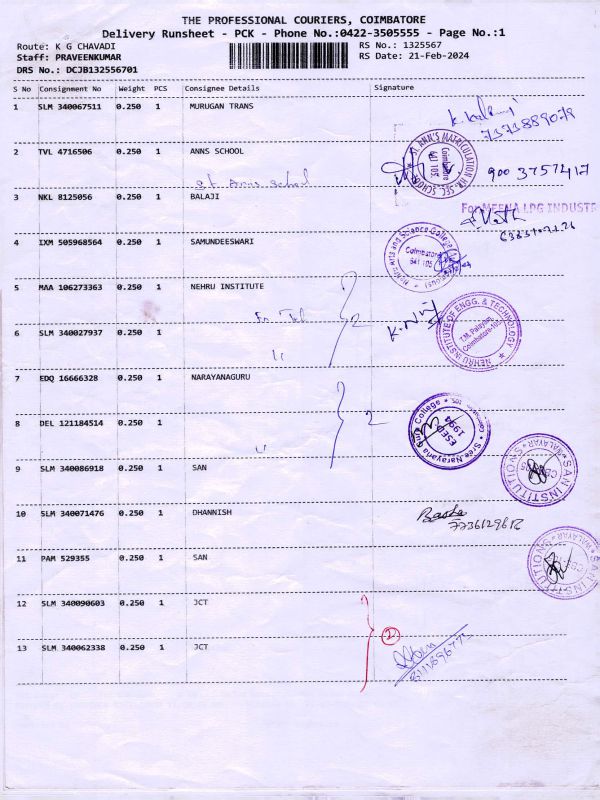 THE PROFESSIONAL COURIERS, COIMBATORE
Delivery Runsheet - PCK - Phone No.:0422-3505555 - Page No.:1
Route: K G CHAVADI RS No.: 1325567
Staff: PRAVEENKUMAR RS Date: 21-Feb-2024
DRS No.: DCJB132556701
S No Consignment No Weight PCS Consignee Details Signature
1 SLM 340067511 0.250 1 MURUGAN TRANS
2 TVL 4716506 0.250 1 ANNS SCHOOL
ST. ANN'S MATRICULATION HR. SEC. SCHOOL
Coimbatore
641 105
St Anns School
3 NKL 8125056 0.250 1 BALAJI
For MEENA LPG INDUSTR
4 IXM 505968564 0.250 1 SAMUNDEESWARI
Nehru Arts and Science College
Coimbatore
641 105
5 MAA 106273363 0.250 1 NEHRU INSTITUTE
2
K. 
NEHRU INSTITUTE OF ENGG. & TECHNOLOGY
T.M. Palayam,
Coimbatore-105
6 SLM 340027937 0.250 1
7 EDQ 16666328 0.250 1 NARAYANAGURU
2
Sree Narayana Guru College
ESED
1994
8 DEL 121184514 0.250 1
9 SLM 340086918 0.250 1 SAN
SAN INSTITUTIONS
10 SLM 340071476 0.250 1 DHANNISH
11 PAM 529355 0.250 1 SAN
SAN INSTITUTIONS
12 SLM 340090603 0.250 1 JCT
2
13 SLM 340062338 0.250 1 JCT